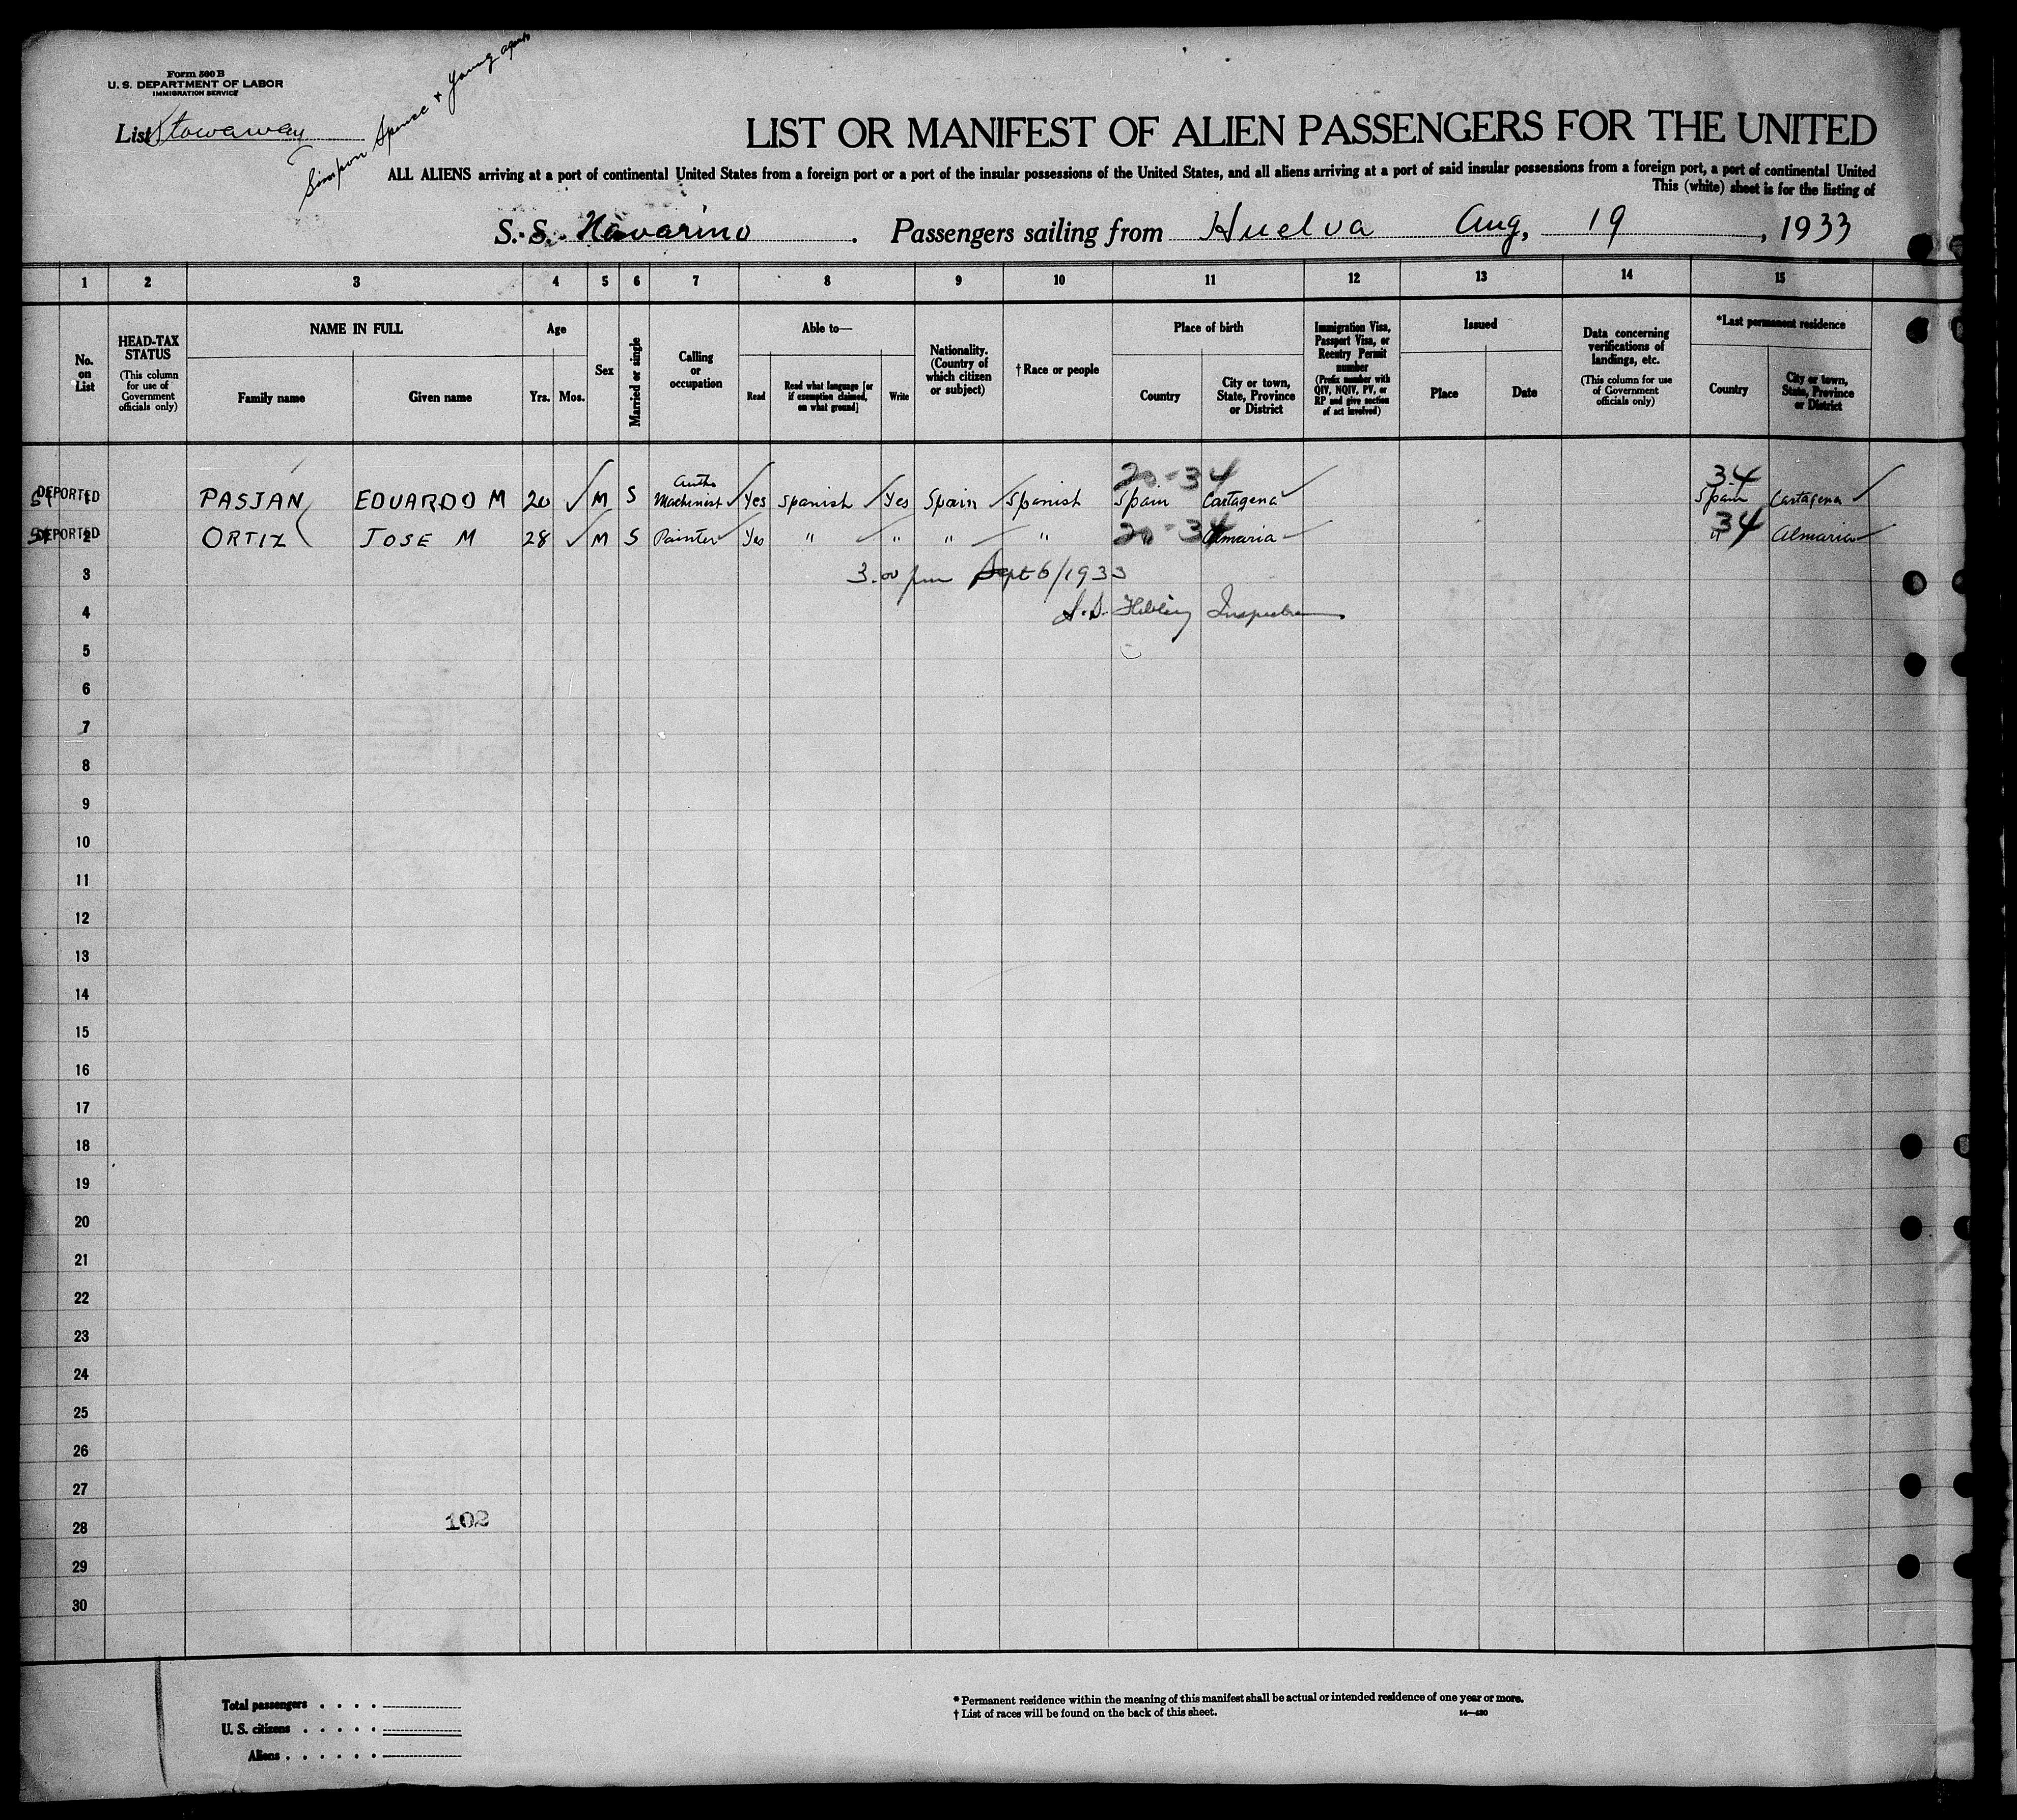 Form 500 B
U. S. DEPARTMENT OF LABOR
IMMIGRATION SERVICE
List Stowaway
Simpson Spence & Young agents
LIST OR MANIFEST OF ALIEN PASSENGERS FOR THE UNITED
ALL ALIENS arriving at a port of continental United States from a foreign port or a port of the insular possessions of the United States, and all aliens arriving at a port of said insular possessions from a foreign port, a port of continental United
This (white) sheet is for the listing of
S. S. Navarino . Passengers sailing from Huelva Aug, 19 , 1933
1 2 3 4 5 6 7 8 9 10 11 12 13 14 15
No. on List
HEAD-TAX STATUS (This column for use of Government officials only)
NAME IN FULL
Family name Given name
Age
Yrs. Mos.
Sex
Married or single
Calling or occupation
Able to—
Read Read what language [or if exemption claimed, on what ground] Write
Nationality. (Country of which citizen or subject)
† Race or people
Place of birth
Country City or town, State, Province or District
Immigration Visa, Passport Visa, or Reentry Permit number (Prefix number with QIV, NQIV, PV, or RP and give section of act involved)
Issued
Place Date
Data concerning verifications of landings, etc. (This column for use of Government officials only)
*Last permanent residence
Country City or town, State, Province or District
20-34 34
DEPORTED 1 PASJAN EDUARDO M 20 M S Auto Machinist Yes Spanish Yes Spain Spanish Spain Cartagena Spain Cartagena
DEPORTED 2 ORTIZ JOSE M 28 M S Painter Yes " " " " 20-34 Almaria " 34 Almaria
3 3.00 pm Sept 6/1933
4 Inspector
5
6
7
8
9
10
11
12
13
14
15
16
17
18
19
20
21
22
23
24
25
26
27
28 102
29
30
Total passengers . . . .
U. S. citizens . . . . .
Aliens . . . . . .
* Permanent residence within the meaning of this manifest shall be actual or intended residence of one year or more.
† List of races will be found on the back of this sheet. 14—430